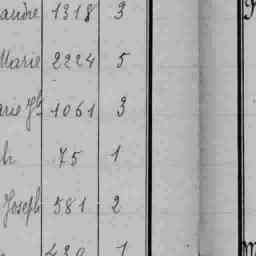 andre 1318 3
Marie 2224 5
arie Jh 1061 3
h 75 1
Joseph 581 2
430 1